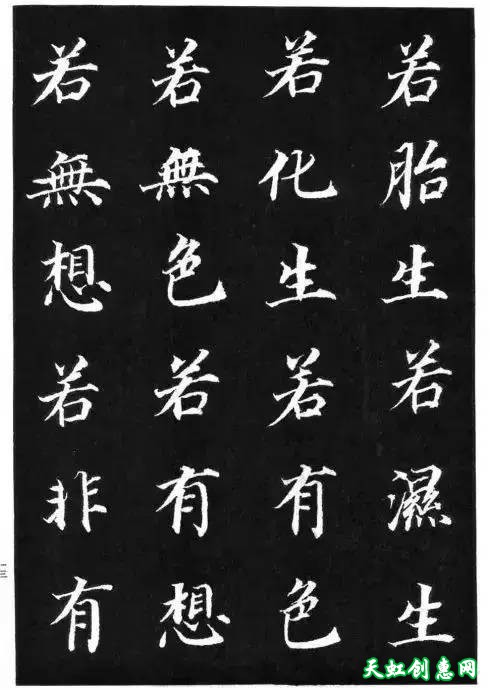 若胎生若濕生
若化生若有色
若無色若有想
若無想若非有
二三
天虹创惠网